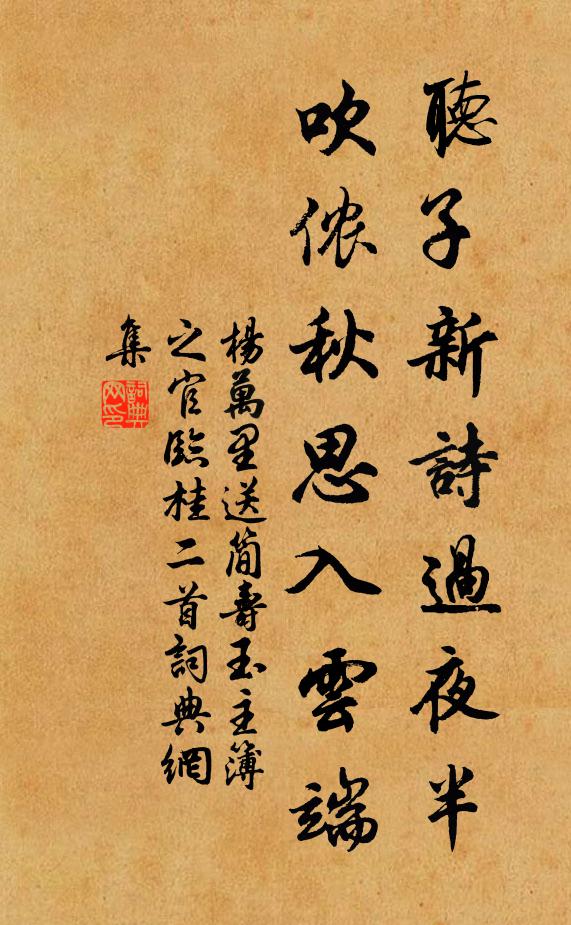 聽子新詩過夜半
吹侬秋思入雲端
楊萬里送简壽玉主簿
之官臨桂二首詞典網
集
詞典網印